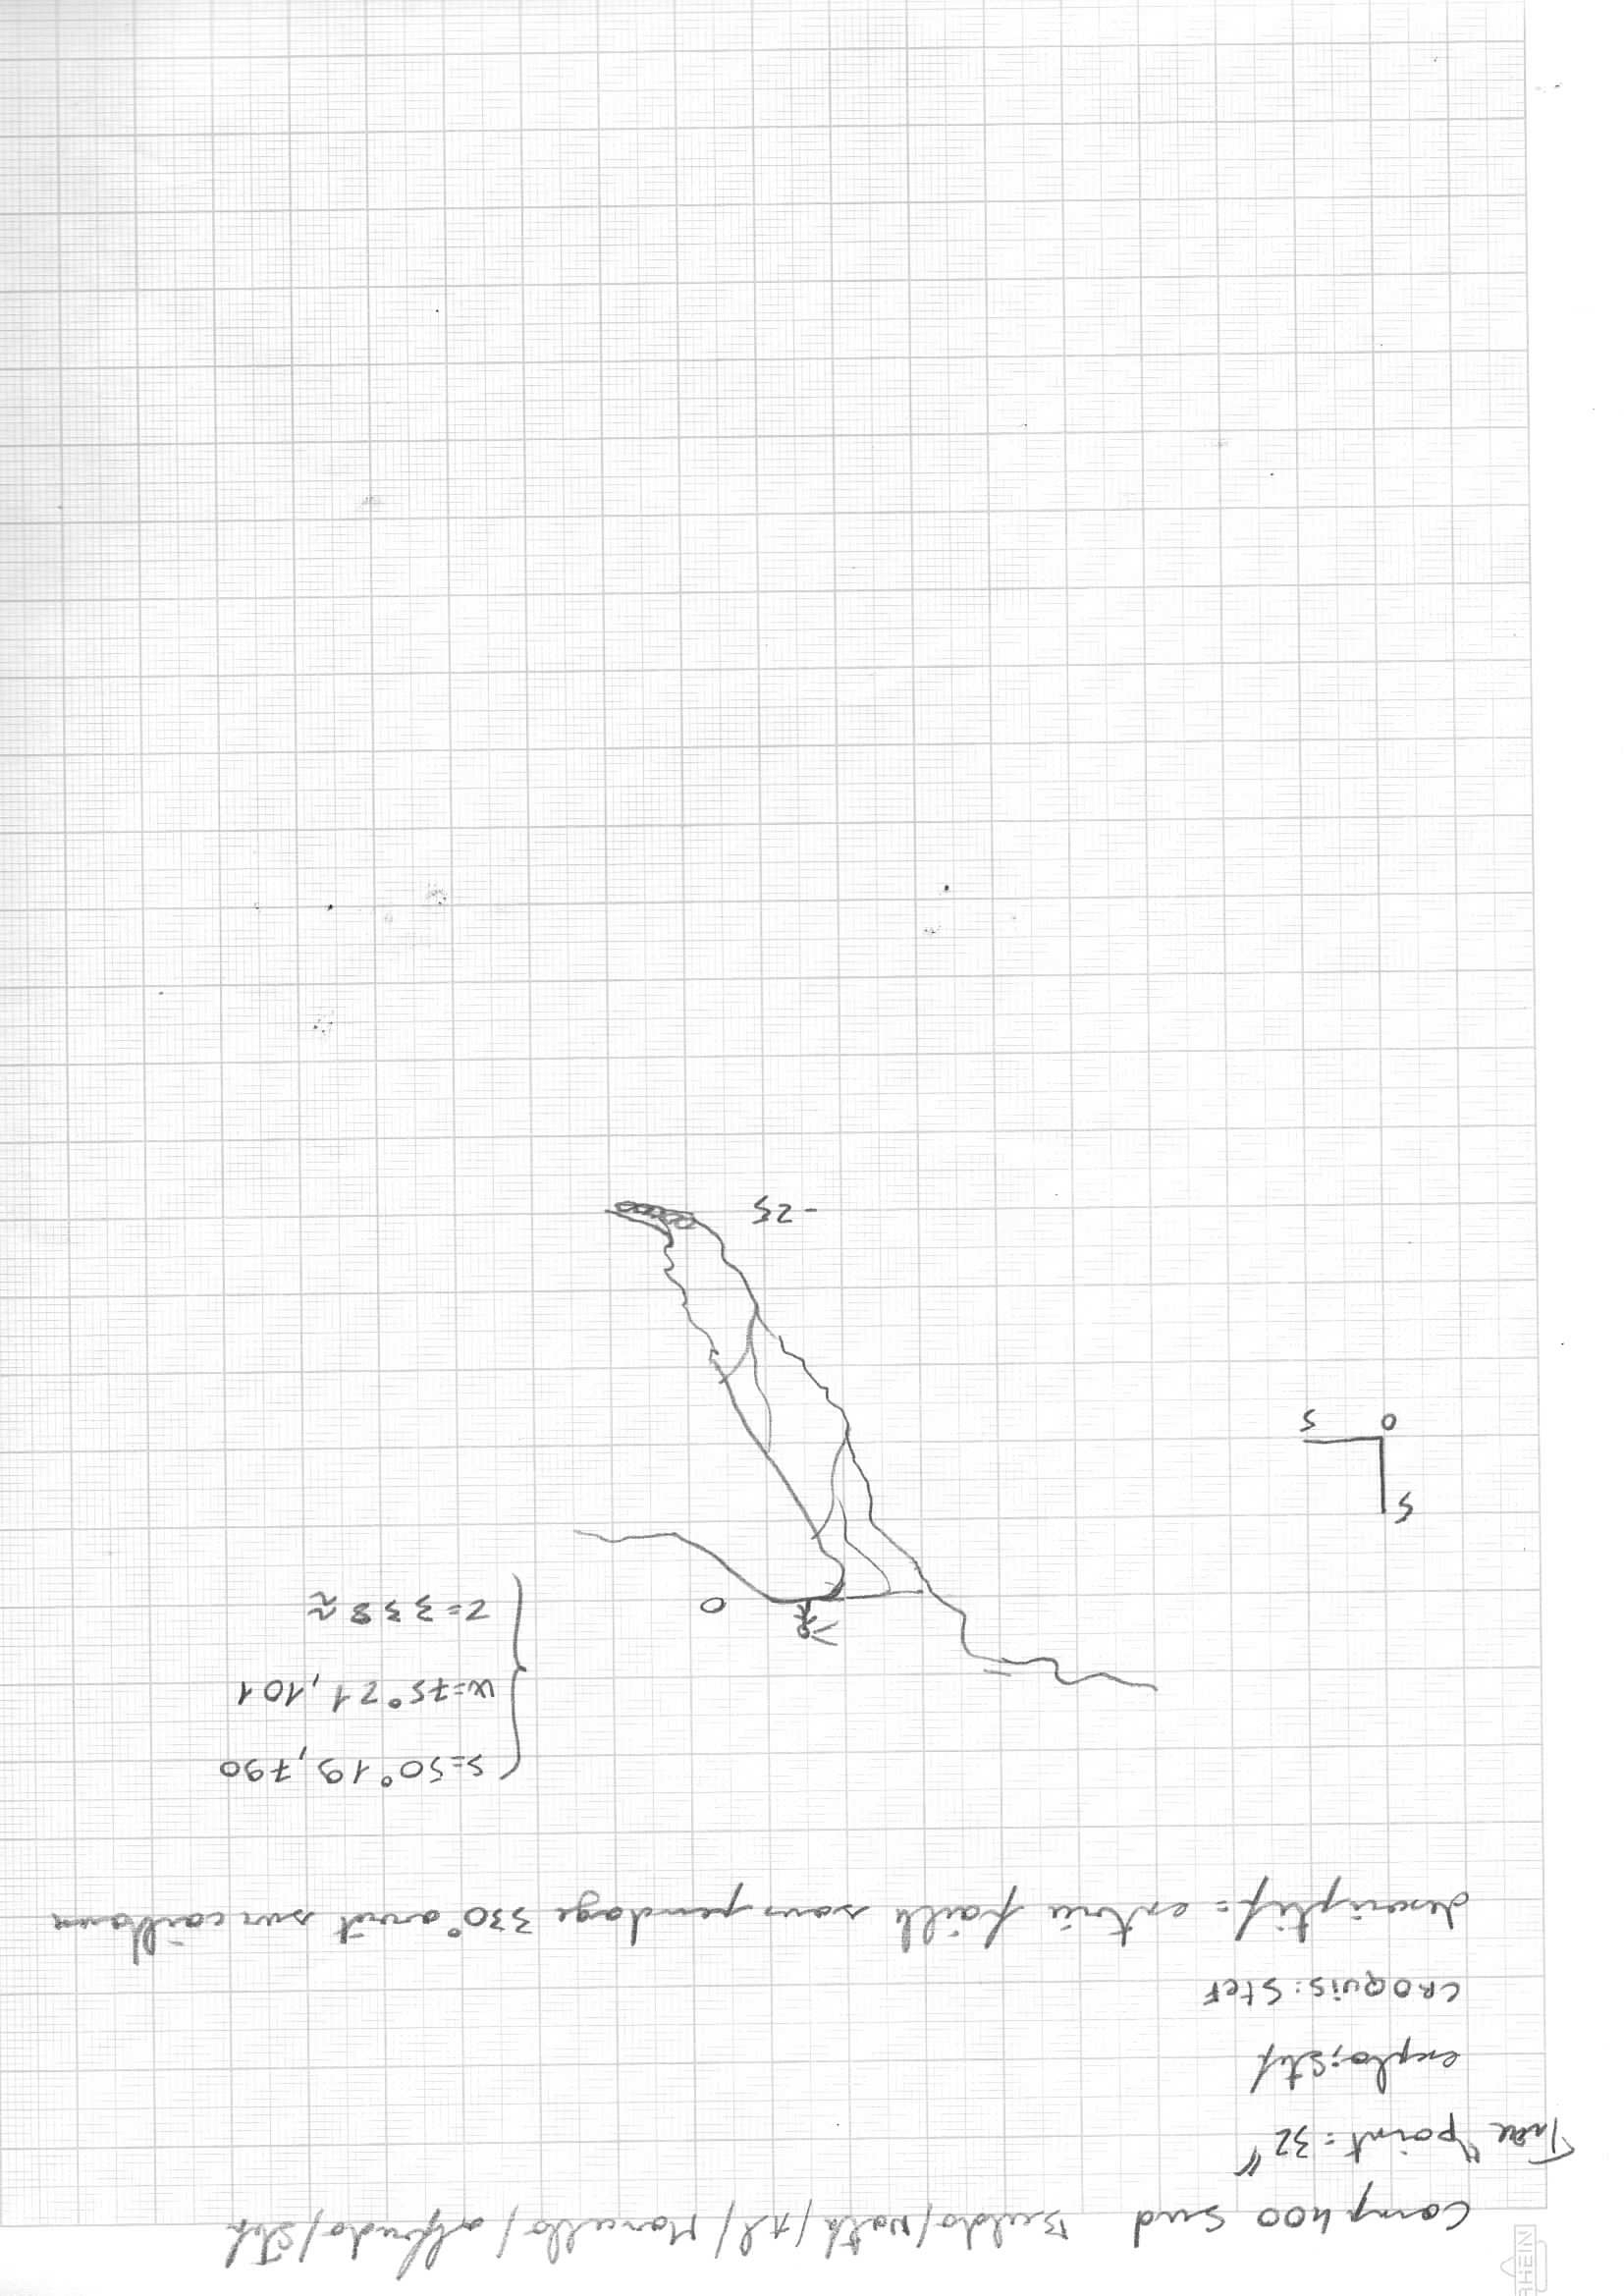 Camp 400 Sud Buldo/Nath/Al/Marcello/alfredo/Stef
Trou "point=32"
explo: Stef
CROQUIS: Stef
descriptif= entrée faille sous pendage 330° arrêt sur cailloux
S=50°19,790
W=75°21,101
Z=338≈
0
5
0
5
-25
RHEIN